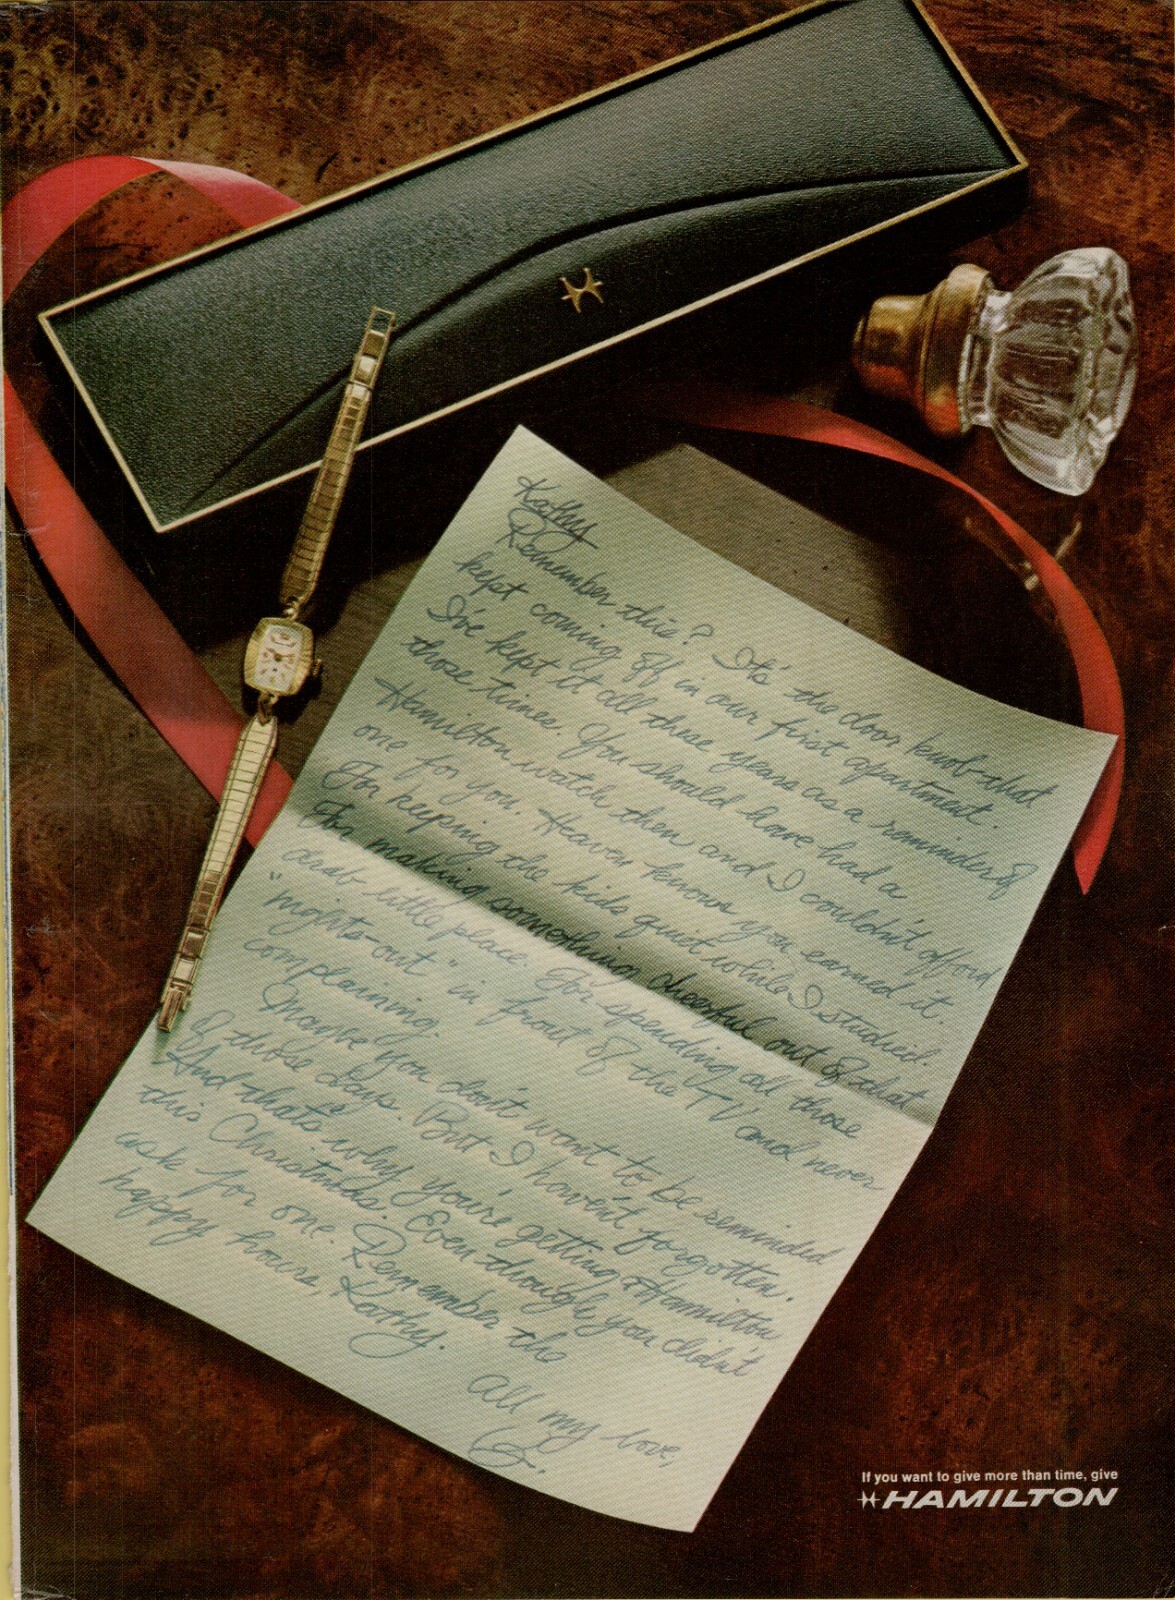 Kathy
Remember this? It's the door knob that
kept coming off in our first apartment.
I've kept it all these years as a reminder of
those times. You should have had a
Hamilton watch then and I couldn't afford
one for you. Heaven knows you earned it.
For keeping the kids quiet while I studied.
For making something cheerful out of that
drab little place. For spending all those
"nights-out" in front of the TV and never
complaining.
Maybe you don't want to be reminded
of those days. But I haven't forgotten.
And that's why you're getting a Hamilton
this Christmas. Even though you didn't
ask for one. Remember the
happy hours, Kathy.
All my love,
If you want to give more than time, give
HAMILTON